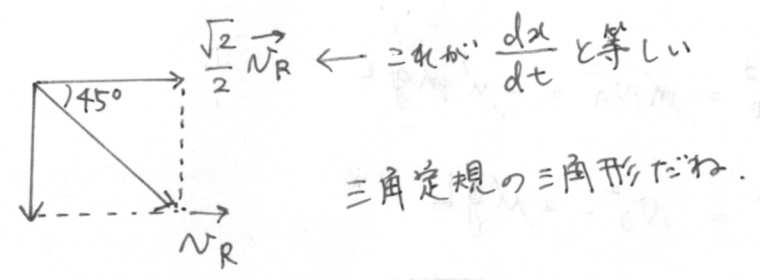 √2/2 v_R→ ← これが dx/dt と等しい
45°
三角定規の三角形だね.
v_R→